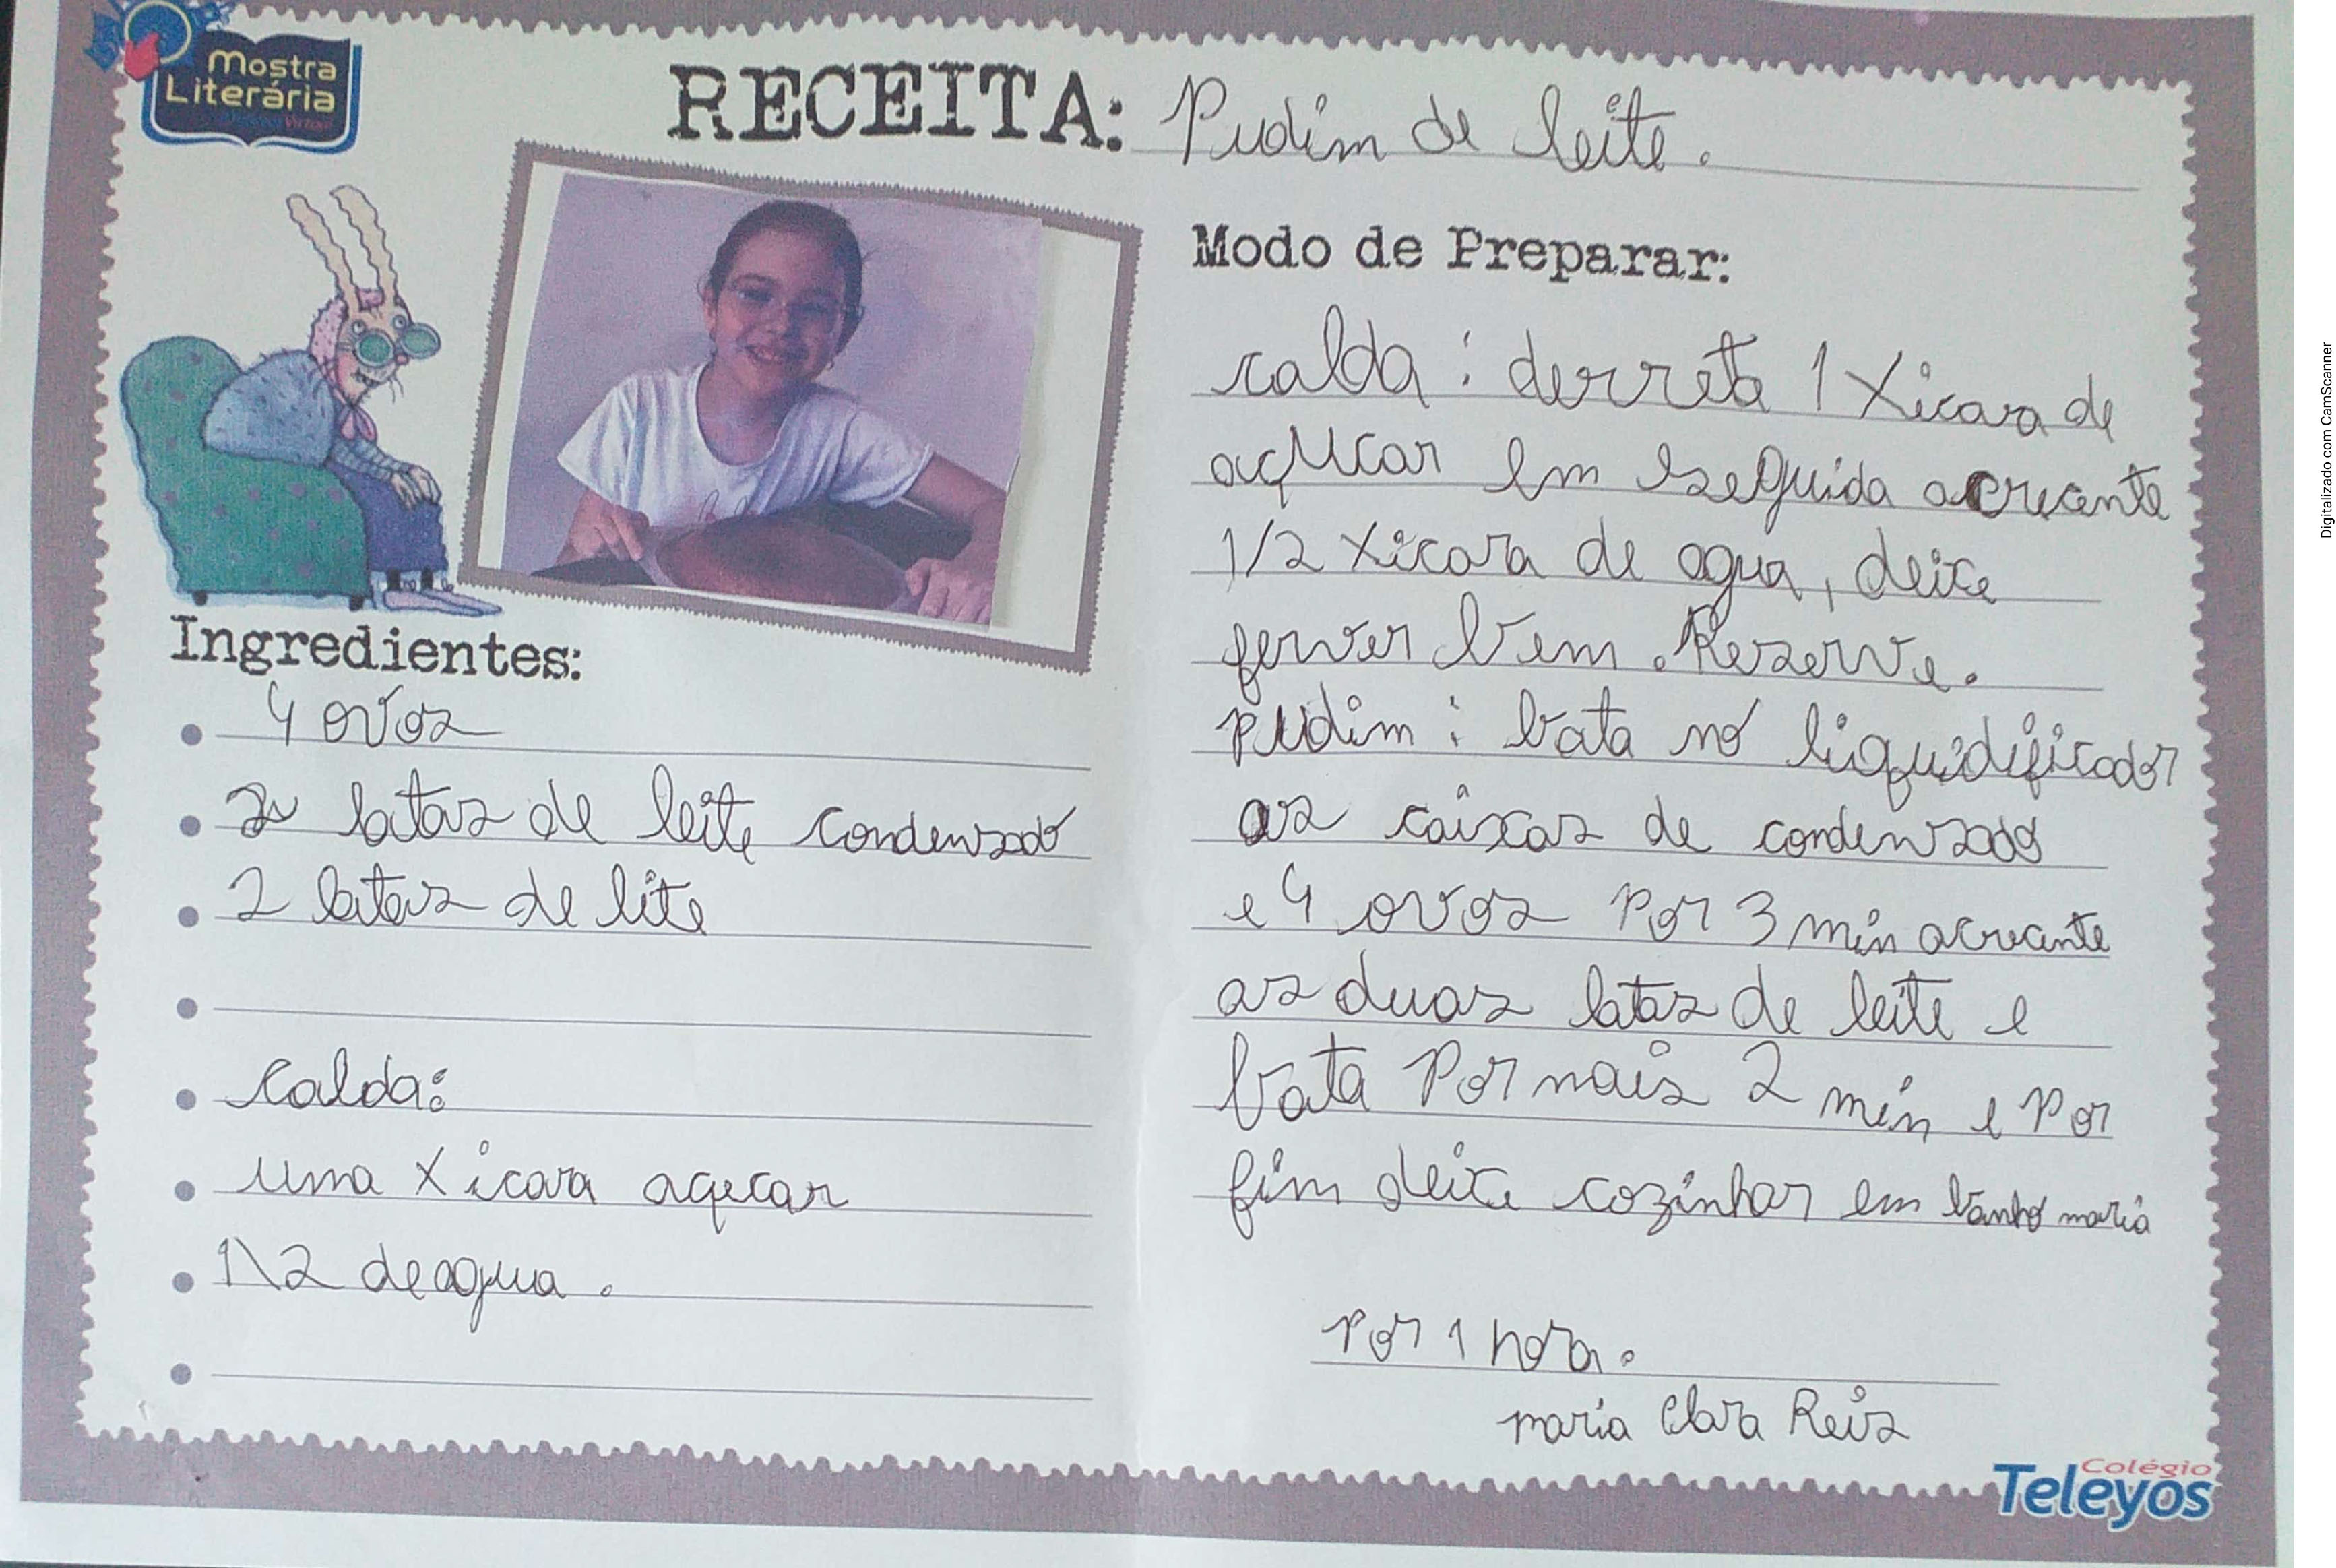 Mostra
Literária
RECEITA: Pudim de leite.
Ingredientes:
4 ovos
2 latas de leite condensado
2 latas de lite
calda:
uma xicara açucar
1\2 de agua.
Modo de Preparar:
calda: derreta 1 xicara de
açucar em eseguida acrecante
1/2 xicara de agua, deixe
ferver bem. Reserve.
pudim: bata no liquidificador
as caixas de condensado
e 4 ovos por 3 min acrecante
as duas latas de leite e
bata por mais 2 min e por
fim deixe cozinhar em banho maria
por 1 hora.
maria Clara Reis
Colégio
Teleyos
Digitalizado com CamScanner